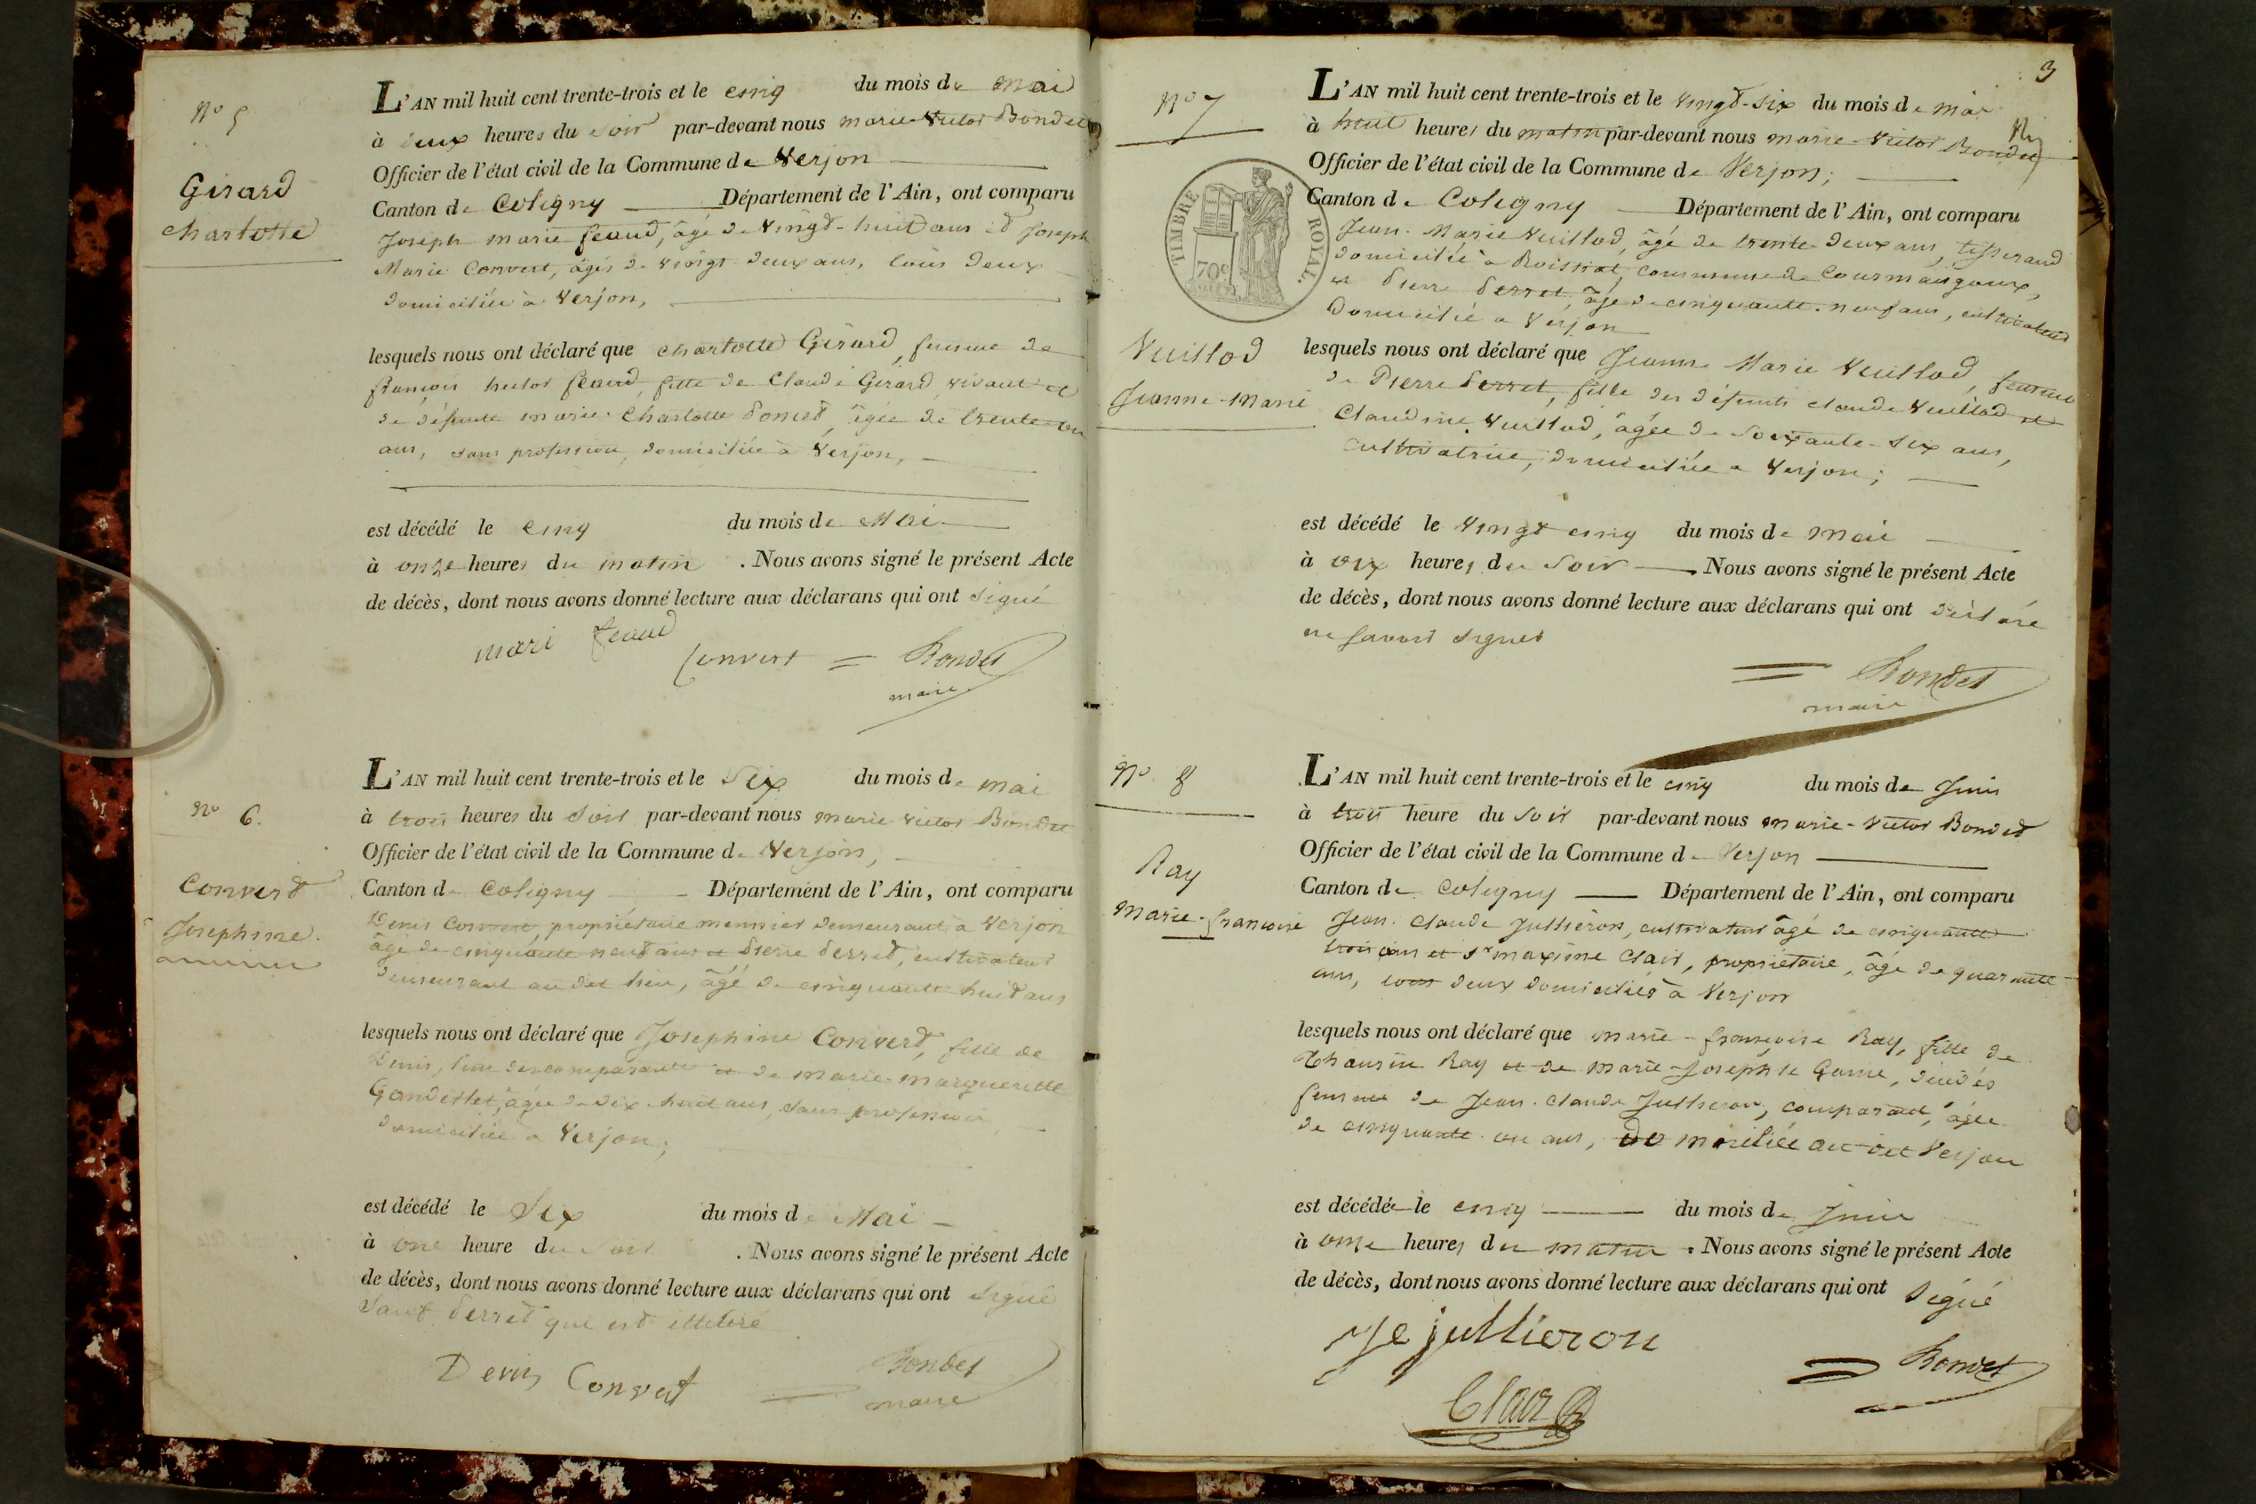 No 5
Girard
Charlotte
L'AN mil huit cent trente-trois et le cinq du mois de Mai
à deux heures du soir par-devant nous marie-Victor Bondet
Officier de l'état civil de la Commune de Verjon
Canton de Coligny Département de l'Ain, ont comparu
Joseph Marie feaud, âgé de vingt-huit ans et Joseph
Marie Convert, âgé de vingt deux ans, tous deux
domiciliés à Verjon,
lesquels nous ont déclaré que Charlotte Girard, femme de
françois hector feaud, fille de Claude Girard, vivant et
de défunte marie-Charlotte Poncet, âgée de trente-un
ans, sans profession, domiciliée à Verjon,
est décédé le cinq du mois de Mai
à onze heures du matin . Nous avons signé le présent Acte
de décès, dont nous avons donné lecture aux déclarans qui ont signé
mari feaud
Convert = Bondet
maire
No 6.
Convert
Josephine
L'AN mil huit cent trente-trois et le Six du mois de mai
à trois heures du soir par-devant nous marie victor Bondet
Officier de l'état civil de la Commune de Verjon,
Canton de Coligny Département de l'Ain, ont comparu
Denis Convert, propriétaire meunier demeurant à Verjon
âgé de cinquante neuf ans et Pierre Perret, cultivateur
demeurant au dit lieu, âgé de cinquante huit ans
lesquels nous ont déclaré que Josephine Convert, fille de
Denis, l'un des comparants et de marie-marguerite
âgée de dix-huit ans, sans profession
domiciliée à Verjon;
est décédé le Six du mois de Mai
à une heure du soir . Nous avons signé le présent Acte
de décès, dont nous avons donné lecture aux déclarans qui ont signé
Sauf Perret qui est illitéré
Denis Convert
Bondet
maire
3
No 7
TIMBRE ROYAL.
70c
Vuillod
Jeanne-Marie
L'AN mil huit cent trente-trois et le vingt-six du mois de mai
à huit heures du matin par-devant nous marie-Victor Bondet
Officier de l'état civil de la Commune de Verjon;
Canton de Coligny Département de l'Ain, ont comparu
Jean-Marie Vuillod, âgé de trente-deux ans, tisserand
domicilié à Roissiat, commune de Courmangoux,
et Pierre Perret, âgé de cinquante-neuf ans, cultivateur
domicilié à Verjon
lesquels nous ont déclaré que Jeanne Marie Vuillod, femme
de Pierre Perret, fille des défunts claude Vuillod et
Claudine Vuillod, âgée de soixante-six ans,
cultivatrice, domiciliée à Verjon;
est décédé le vingt cinq du mois de mai
à heures du soir . Nous avons signé le présent Acte
de décès, dont nous avons donné lecture aux déclarans qui ont déclaré
ne savoir signer
= Bondet
maire
No 8
Ray
Marie-françoise
L'AN mil huit cent trente-trois et le cinq du mois de Juin
à trois heure du soir par-devant nous marie-Victor Bondet
Officier de l'état civil de la Commune de Verjon
Canton de Coligny Département de l'Ain, ont comparu
Jean-Claude Jullieron, cultivateur âgé de cinquante
trois ans et Sr maxime Clair, propriétaire, âgé de quarante
ans, tous deux domiciliés à Verjon
lesquels nous ont déclaré que marie-françoise Ray, fille de
Ray et de marie-Josephte décédés
femme de Jean-Claude Jullieron, comparant, âgée
de cinquante-un ans, Domiciliée au dit Verjon
est décédée le cinq du mois de Juin
à onze heures du matin . Nous avons signé le présent Acte
de décès, dont nous avons donné lecture aux déclarans qui ont signé
jullieron
= Bondet
Clair